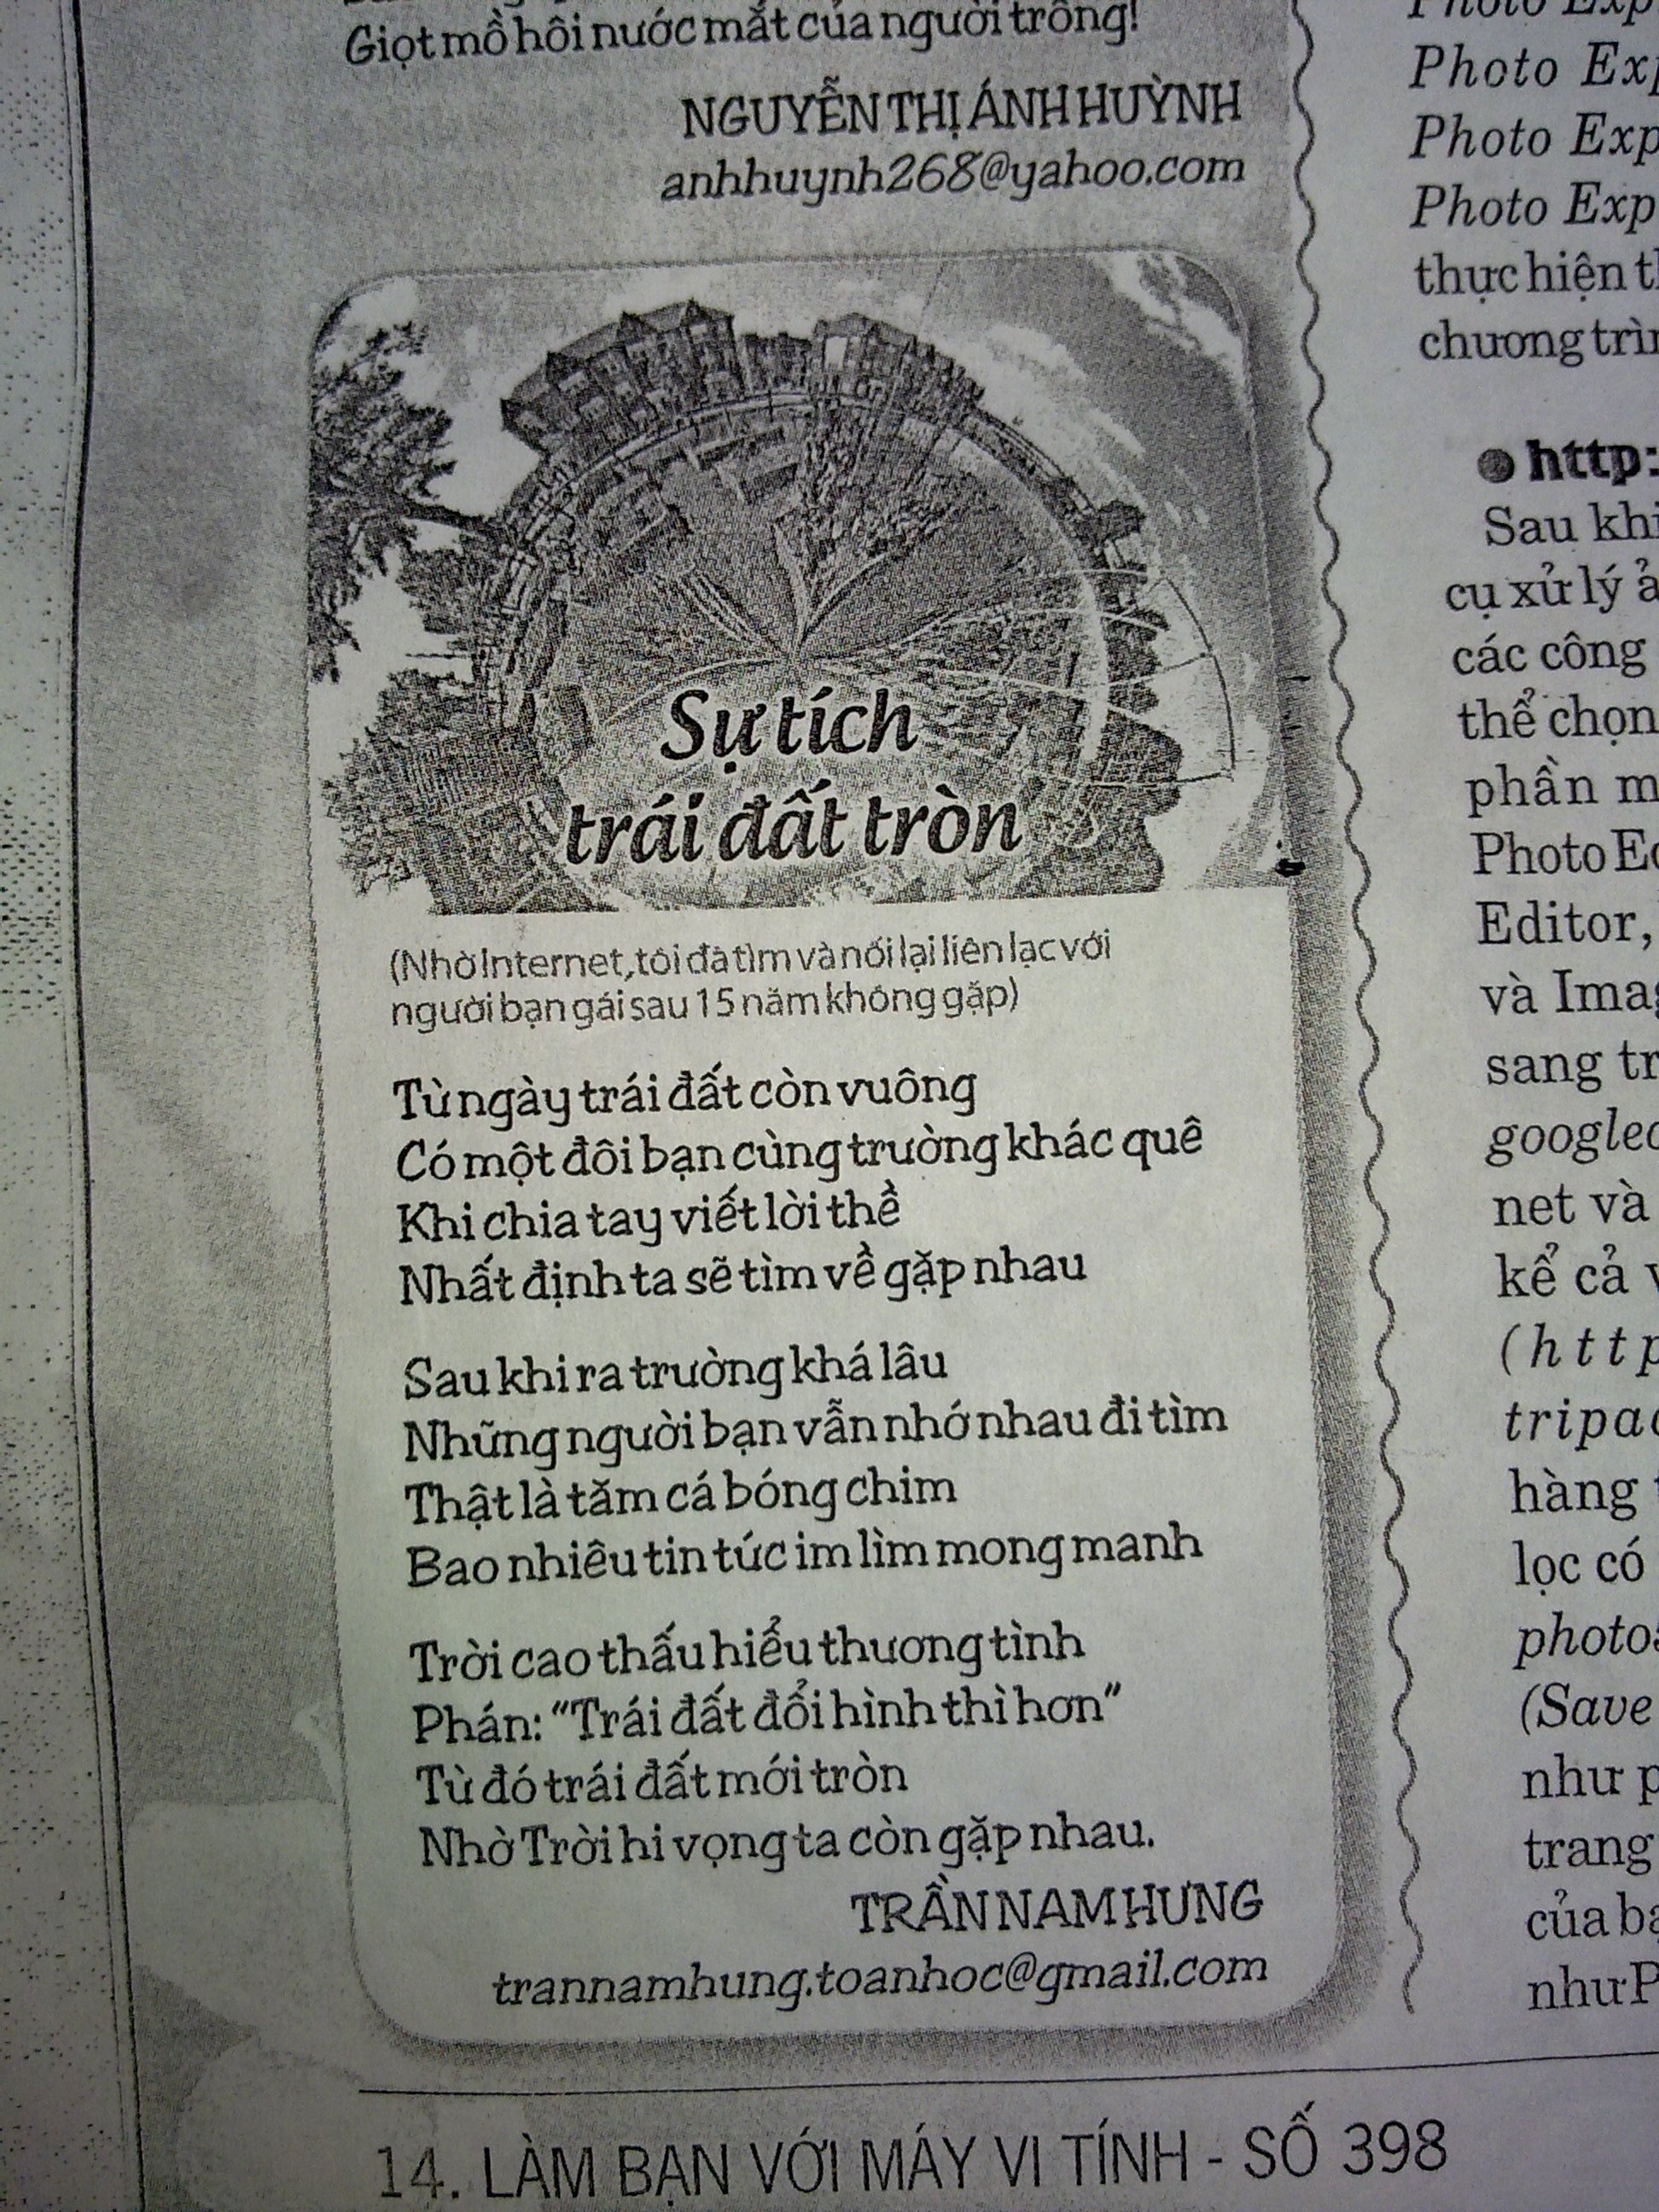 Giọt mồ hôi nước mắt của người trồng!
NGUYỄN THỊ ÁNH HUỲNH
anhhuynh268@yahoo.com
Sự tích
trái đất tròn
(Nhờ Internet, tôi đã tìm và nối lại liên lạc với
người bạn gái sau 15 năm không gặp)
Từ ngày trái đất còn vuông
Có một đôi bạn cùng trường khác quê
Khi chia tay viết lời thề
Nhất định ta sẽ tìm về gặp nhau
Sau khi ra trường khá lâu
Những người bạn vẫn nhớ nhau đi tìm
Thật là tăm cá bóng chim
Bao nhiêu tin tức im lìm mong manh
Trời cao thấu hiểu thương tình
Phán: "Trái đất đổi hình thì hơn"
Từ đó trái đất mới tròn
Nhờ Trời hi vọng ta còn gặp nhau.
TRẦN NAM HƯNG
trannamhung.toanhoc@gmail.com
14. LÀM BẠN VỚI MÁY VI TÍNH - SỐ 398
Photo
Photo
Photo
Photo
thực hiện
chương
http:
Sau khi
cụ xử lý
các công
thể chọn
phần
Photo
Editor,
và
sang
net và
kể cả
(http
hàng
lọc có
(Save
như
trang
của
như